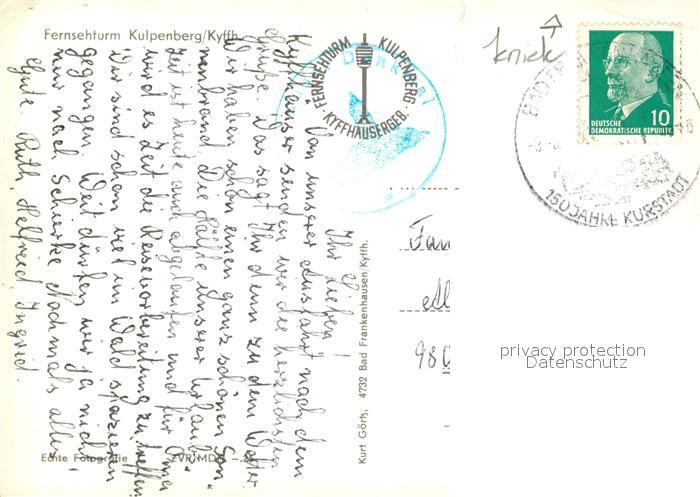 Fernsehturm Kulpenberg/Kyffh.
FERNSEHTURM KULPENBERG
KYFFHÄUSERGEB.
Denkmal
knick
10
DEUTSCHE
DEMOKRATISCHE REPUBLIK
150 JAHRE KURSTADT
Ihr Lieben!
Von unserer Ausfahrt nach dem
Kyffhäuser senden wir die herzlichsten
Grüße. Was sagt Ihr denn zu dem Wetter.
Wir haben schon einen ganz schönen Son-
nenbrand. Die Hälfte unserer Urlaubs-
zeit ist heute auch abgelaufen und für Oma
wird es Zeit die Reisevorbereitung zu treffen.
Wir sind schon viel im Wald spazieren
gegangen. Weit dürfen wir ja nicht
nur nach Schierke. Nochmals alles
Gute. Ruth, Helfried, Ingrid.
Kurt Görts, 4732 Bad Frankenhausen/Kyffh.
Fam
980
Echte Fotografie
privacy protection
Datenschutz